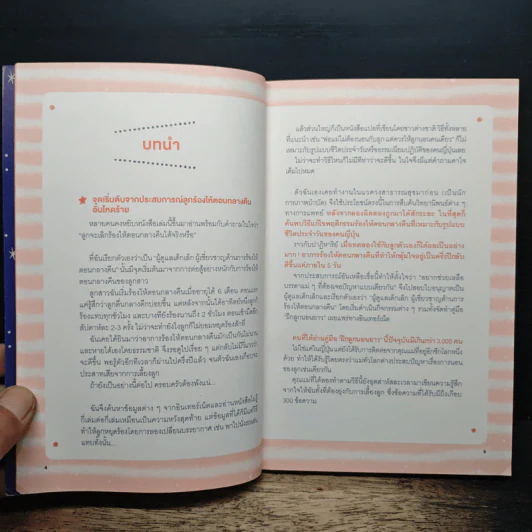 บทนำ
จุดเริ่มต้นจากประสบการณ์ลูกร้องไห้ตอนกลางคืน
อันโหดร้าย
หลายคนคงหยิบหนังสือเล่มนี้ขึ้นมาอ่านพร้อมกับคำถามในใจว่า
"ลูกจะเลิกร้องไห้ตอนกลางคืนได้จริงหรือ"
ที่ฉันเรียกตัวเองว่าเป็น "ผู้ดูแลเด็กเล็ก ผู้เชี่ยวชาญด้านการร้องไห้
ตอนกลางคืน" นั้นมีจุดเริ่มต้นมาจากการต่อสู้อย่างหนักกับการร้องไห้ตอน
กลางคืนของลูกสาว
ลูกสาวฉันเริ่มร้องไห้ตอนกลางคืนเมื่ออายุได้ 6 เดือน ตอนแรก
แค่รู้สึกว่าตื่นกลางดึกบ่อยขึ้น แต่หลังจากนั้นได้อาทิตย์หนึ่งลูกก็
ร้องแทบทุกชั่วโมง และบางทียังร้องนาน 2 ชั่วโมง ตอนเช้ามืดอีก
สัปดาห์ละ 2-3 ครั้ง ไม่ว่าจะทำยังไงลูกก็ไม่ยอมหยุดร้องสักที
ฉันเคยได้ยินมาว่าอาการร้องไห้ตอนกลางคืนมักเป็นกันไม่นาน
และหายได้เองโดยธรรมชาติ จึงขอดูไปเรื่อย ๆ แต่กลับไม่มีวี่แววว่า
จะดีขึ้น พอรู้ตัวอีกทีเวลาก็ผ่านไปครึ่งปีแล้ว จนตัวฉันเองเกือบจะ
ประสาทเสียจากการเลี้ยงลูก
ถ้ายังเป็นอย่างนี้ต่อไป ครอบครัวต้องพังแน่...
ฉันจึงค้นหาข้อมูลต่าง ๆ จากอินเทอร์เน็ตและอ่านหนังสือไม่รู้
กี่เล่มต่อกี่เล่มเหมือนเป็นความหวังสุดท้าย แต่ข้อมูลที่ได้ก็มีแค่วิธี
ทำให้ลูกหยุดร้องโดยการลองเปลี่ยนบรรยากาศ เช่น พาไปนั่งรถเล่น
แทบทั้งนั้น...
4
แล้วส่วนใหญ่ก็เป็นหนังสือแปลที่เขียนโดยชาวต่างชาติ วิธีทั้งหลาย
ที่แนะนำ เช่น "พ่อแม่ไม่ต้องนอนกับลูก แต่ควรให้ลูกนอนคนเดียว" ก็ไม่
เหมาะกับรูปแบบชีวิตประจำวันหรือธรรมเนียมปฏิบัติของคนญี่ปุ่นเลย
ไม่ว่าจะทำวิธีไหนก็ไม่มีทีท่าว่าจะดีขึ้น ในใจจึงมีแต่คำถามคาใจ
เต็มไปหมด
ตัวฉันเองเคยทำงานในแวดวงสาธารณสุขมาก่อน (เป็นนัก
กายภาพบำบัด) จึงใช้ประโยชน์ตรงนี้ในการสืบค้นวิทยานิพนธ์ต่าง ๆ
ทางการแพทย์ หลังจากลองผิดลองถูกมาได้สักระยะ ในที่สุดก็
ค้นพบวิธีแก้ไขพฤติกรรมร้องไห้ตอนกลางคืนที่เหมาะกับรูปแบบ
ชีวิตประจำวันของคนญี่ปุ่น
ราวกับปาฏิหาริย์ เมื่อทดลองใช้กับลูกตัวเองก็ได้ผลเป็นอย่าง
มาก! อาการร้องไห้ตอนกลางคืนที่ทำให้กลุ้มใจอยู่เป็นครึ่งปีกลับ
ดีขึ้นแค่ภายใน 5 วัน
จากประสบการณ์อันเหลือเชื่อนี้ทำให้ตั้งใจว่า "อยากช่วยเหลือ
บรรดาแม่ ๆ ที่ต้องเจอปัญหาแบบเดียวกัน" จึงไปสอบใบอนุญาตเป็น
ผู้ดูแลเด็กเล็กและเรียกตัวเองว่า "ผู้ดูแลเด็กเล็ก ผู้เชี่ยวชาญด้านการ
ร้องไห้ตอนกลางคืน" โดยเริ่มดำเนินกิจกรรมต่าง ๆ รวมทั้งจัดทำคู่มือ
"ฝึกลูกนอนยาว" เผยแพร่ทางอินเทอร์เน็ต
คนที่ได้อ่านคู่มือ "ฝึกลูกนอนยาว" นี้ปัจจุบันมีเกินกว่า 3,000 คน
ไม่ใช่แค่ในญี่ปุ่น
คุณแม่ที่ได้ลองทำตามวิธีนี้ยังอุตส่าห์สละเวลามาเขียนความรู้สึก
300 ข้อความ